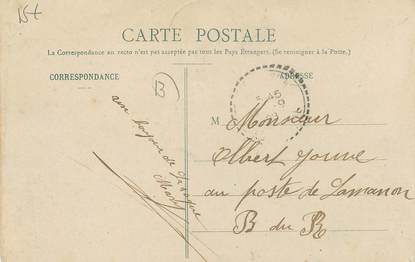 15+
CARTE POSTALE
La Correspondance au recto n'est pas acceptée par tous les Pays Étrangers. (Se renseigner à la Poste.)
CORRESPONDANCE
ADRESSE
B
un bonjour de
Mary
M Monsieur
Albert
au poste de Lamanon
B du R